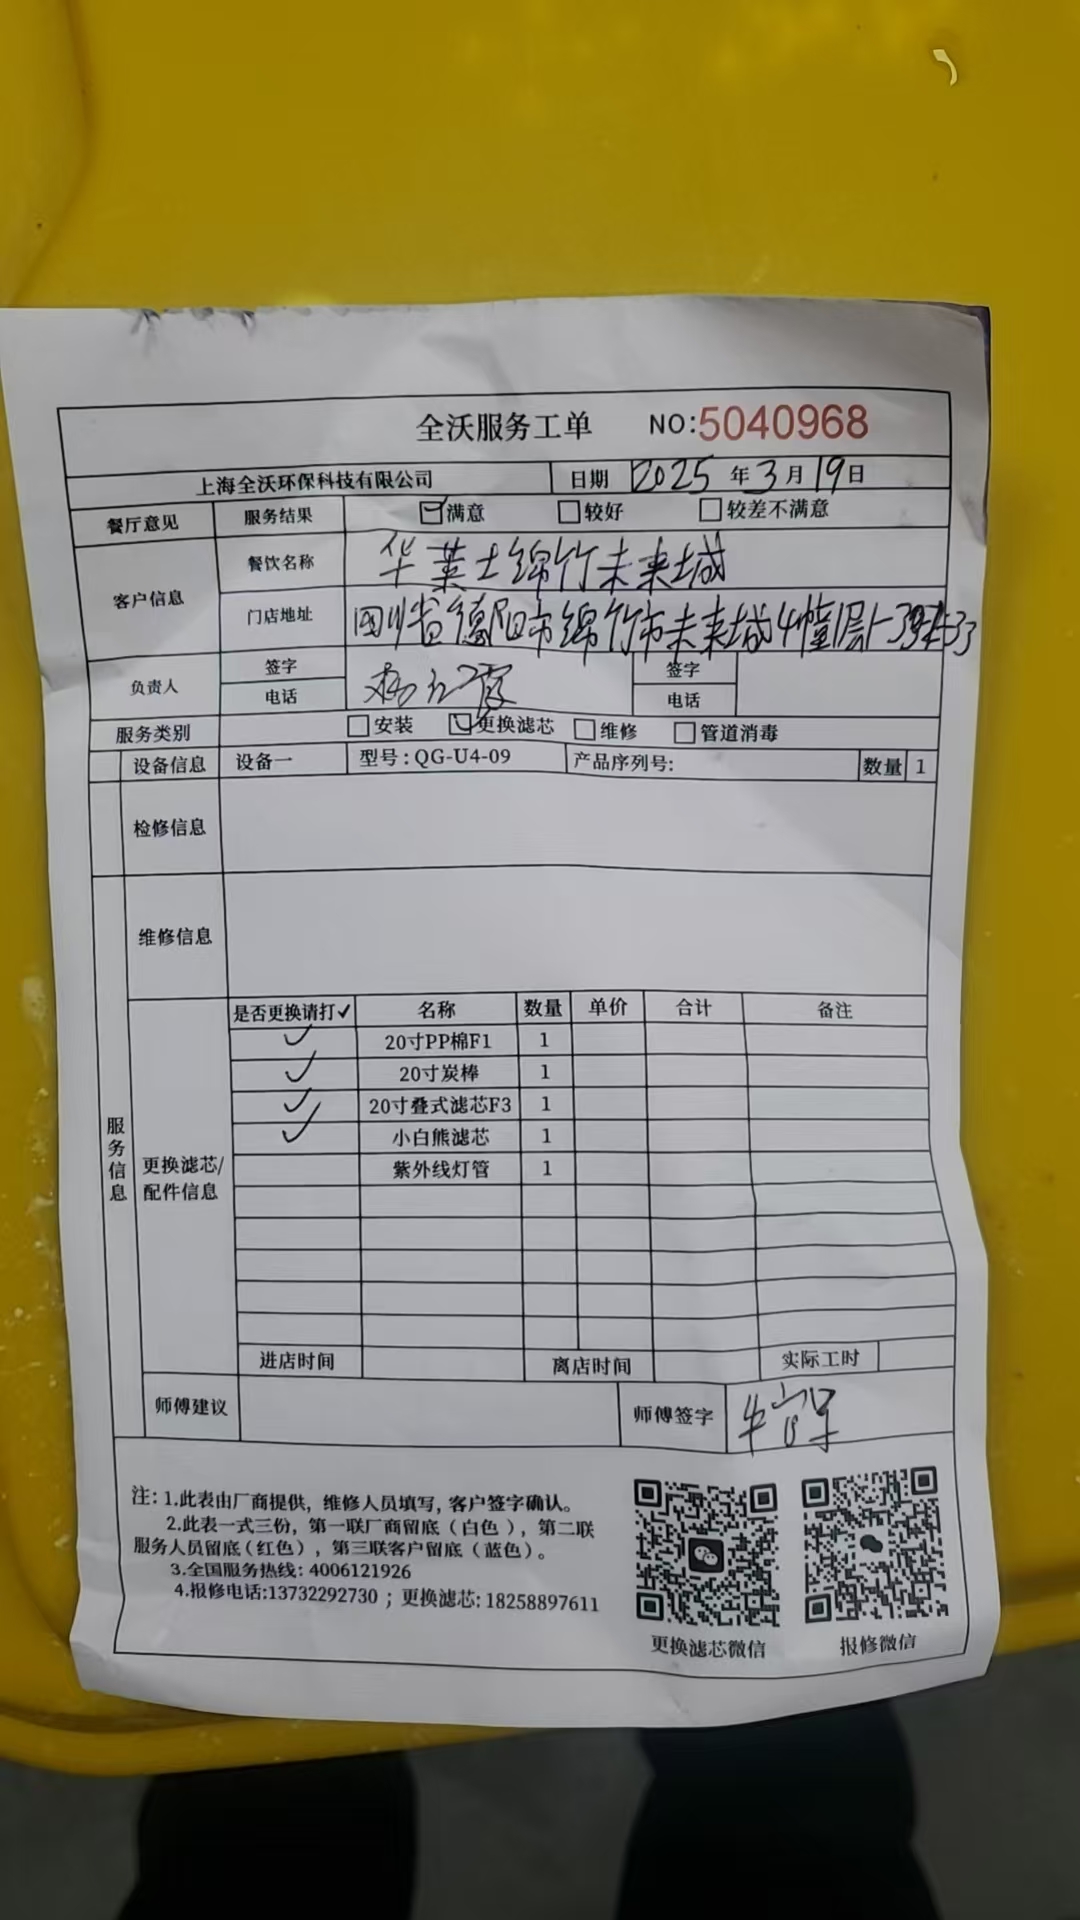 全沃服务工单 NO:5040968
上海全沃环保科技有限公司 日期 2025 年 3 月 19 日
餐厅意见 服务结果 满意 较好 较差不满意
客户信息 餐饮名称 华莱士绵竹未来城
门店地址 四川省德阳市绵竹市未来城4幢1层1-
负责人 签字 签字
电话 电话
服务类别 安装 更换滤芯 维修 管道消毒
设备信息 设备一 型号:QG-U4-09 产品序列号: 数量 1
检修信息
维修信息
服务信息
更换滤芯/配件信息
是否更换请打✓ 名称 数量 单价 合计 备注
✓ 20寸PP棉F1 1
✓ 20寸炭棒 1
✓ 20寸叠式滤芯F3 1
✓ 小白熊滤芯 1
紫外线灯管 1
进店时间 离店时间 实际工时
师傅建议 师傅签字
注: 1.此表由厂商提供, 维修人员填写, 客户签字确认。
2.此表一式三份, 第一联厂商留底 (白色), 第二联
服务人员留底(红色), 第三联客户留底 (蓝色)。
3.全国服务热线: 4006121926
4.报修电话:13732292730 ; 更换滤芯: 18258897611
更换滤芯微信 报修微信